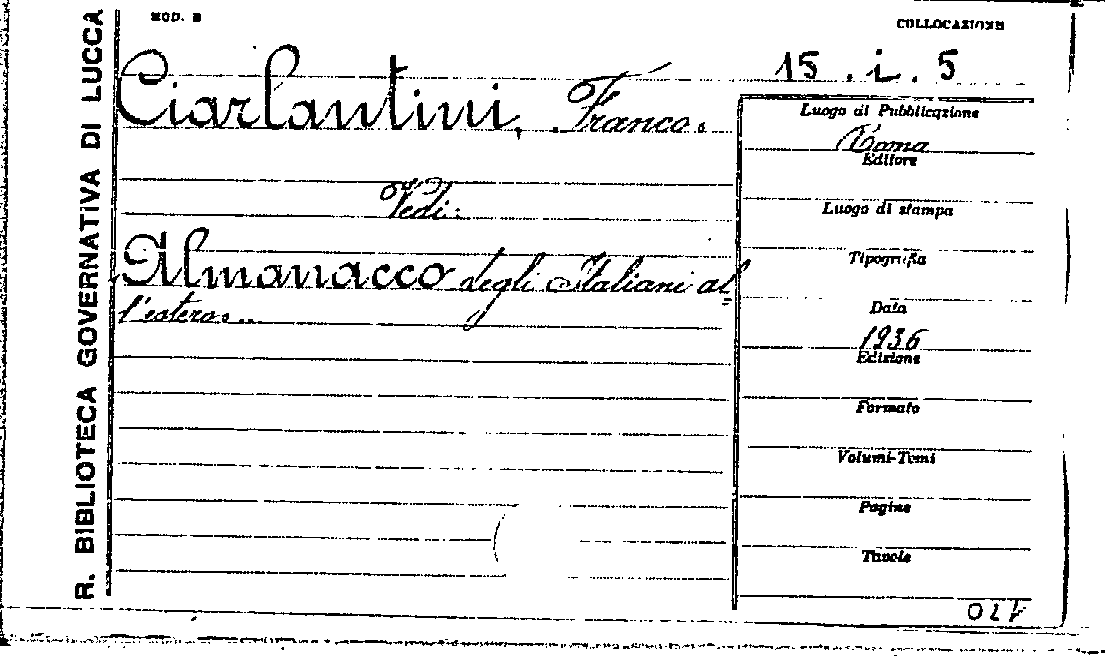 R. BIBLIOTECA GOVERNATIVA DI LUCCA
MOD. B
COLLOCAZIONE
15. i. 5
Ciarlantini, Franco.
Vedi:
Almanacco degli Italiani al
l'estero...
Luogo di Pubblicazione
Roma
Editore
Luogo di stampa
Tipografia
Data
1936
Edizione
Formato
Volumi-Tomi
Pagine
Tavole